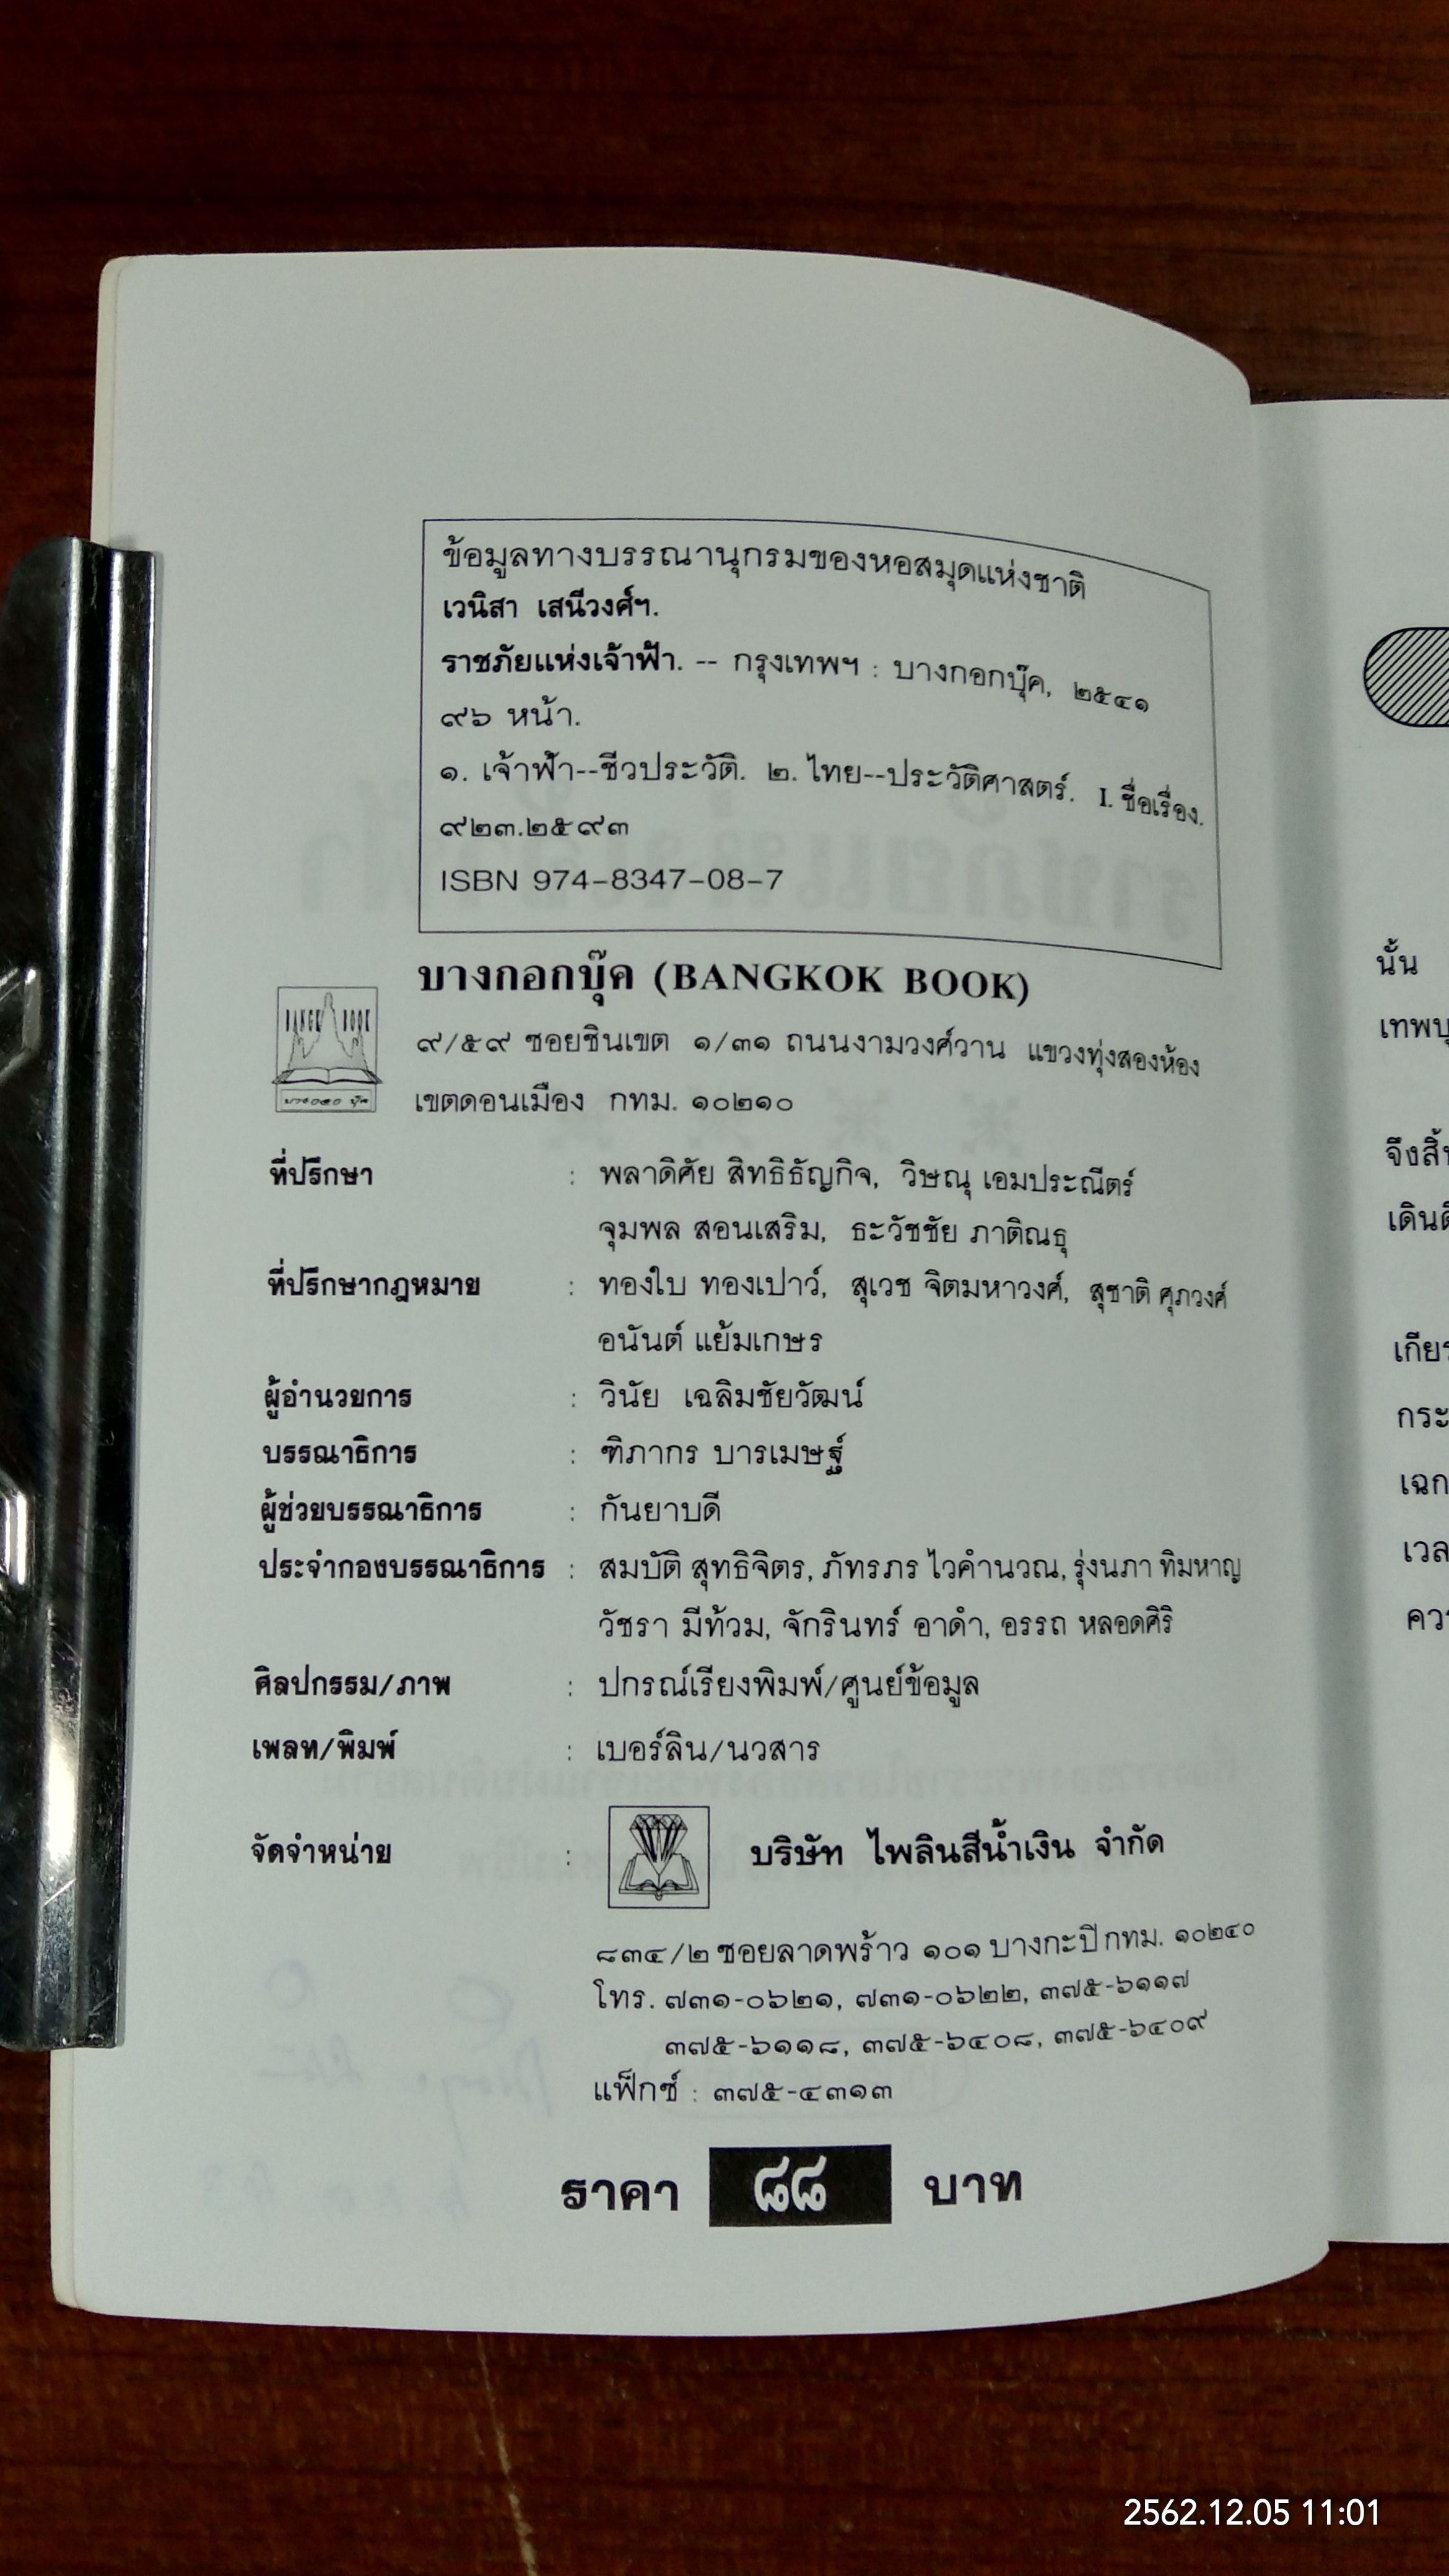 ข้อมูลทางบรรณานุกรมของหอสมุดแห่งชาติ
เวนิสา เสนีวงศ์ฯ.
ราชภัยแห่งเจ้าฟ้า. -- กรุงเทพฯ : บางกอกบุ๊ค, ๒๕๔๑
๙๖ หน้า.
๑. เจ้าฟ้า--ชีวประวัติ. ๒. ไทย--ประวัติศาสตร์. I. ชื่อเรื่อง.
๙๒๓.๒๕๙๓
ISBN 974-8347-08-7
BANGK BOOK
บางกอก บุ๊ค
บางกอกบุ๊ค (BANGKOK BOOK)
๙/๕๙ ซอยชินเขต ๑/๓๑ ถนนงามวงศ์วาน แขวงทุ่งสองห้อง
เขตดอนเมือง กทม. ๑๐๒๑๐
ที่ปรึกษา : พลาดิศัย สิทธิธัญกิจ, วิษณุ เอมประณีตร์
จุมพล สอนเสริม, ธะวัชชัย ภาติณธุ
ที่ปรึกษากฎหมาย : ทองใบ ทองเปาว์, สุเวช จิตมหาวงศ์, สุชาติ ศุภวงศ์
อนันต์ แย้มเกษร
ผู้อำนวยการ : วินัย เฉลิมชัยวัฒน์
บรรณาธิการ : ฑิภากร บารเมษฐ์
ผู้ช่วยบรรณาธิการ : กันยาบดี
ประจำกองบรรณาธิการ : สมบัติ สุทธิจิตร, ภัทรภร ไวคำนวณ, รุ่งนภา ทิมหาญ
วัชรา มีท้วม, จักรินทร์ อาดำ, อรรถ หลอดศิริ
ศิลปกรรม/ภาพ : ปกรณ์เรียงพิมพ์/ศูนย์ข้อมูล
เพลท/พิมพ์ : เบอร์ลิน/นวสาร
จัดจำหน่าย : บริษัท ไพลินสีน้ำเงิน จำกัด
๘๓๔/๒ ซอยลาดพร้าว ๑๐๑ บางกะปิ กทม. ๑๐๒๔๐
โทร. ๗๓๑-๐๖๒๑, ๗๓๑-๐๖๒๒, ๓๗๕-๖๑๑๗
๓๗๕-๖๑๑๘, ๓๗๕-๖๔๐๘, ๓๗๕-๖๔๐๙
แฟ็กซ์ : ๓๗๕-๔๓๑๓
ราคา ๘๘ บาท
นั้น
2562.12.05 11:01